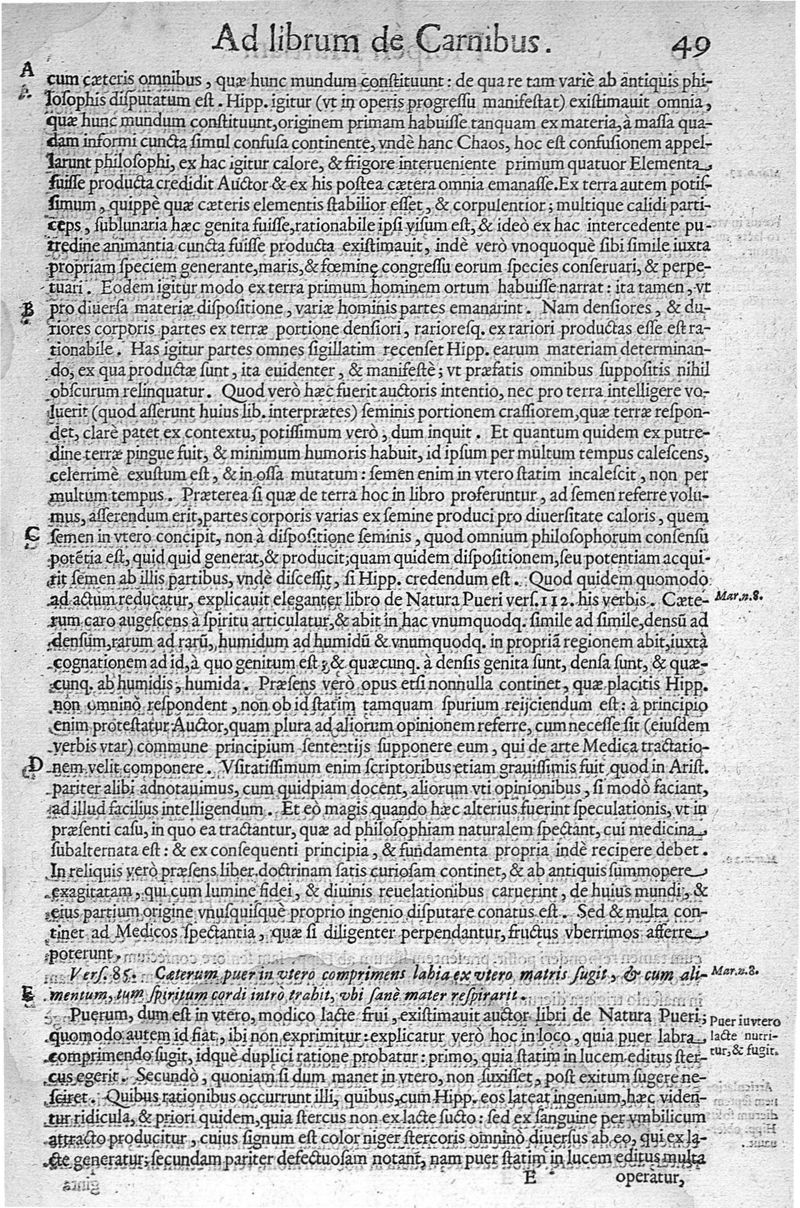 Ad librum de Carnibus. 49
A
cum cæteris omnibus, quæ hunc mundum constituunt: de qua re tam variè ab antiquis phi-
losophis disputatum est. Hipp. igitur (vt in operis progressu manifestat) existimauit omnia,
quæ hunc mundum constituunt, originem primam habuisse tanquam ex materia, à massa qua-
dam informi cuncta simul confusa continente, vndè hanc Chaos, hoc est confusionem appel-
larunt philosophi, ex hac igitur calore, & frigore interueniente primum quatuor Elementa
fuisse producta credidit Auctor & ex his postea cætera omnia emanasse. Ex terra autem potis-
simum, quippè quæ cæteris elementis stabilior esset, & corpulentior; multique calidi parti-
ceps, sublunaria hæc genita fuisse, rationabile ipsi visum est, & ideò ex hac intercedente pu-
tredine animantia cuncta fuisse producta existimauit, indè verò vnoquoquè sibi simile iuxta
propriam speciem generante, maris, & fœmine congressu eorum species conseruari, & perpe-
tuari. Eodem igitur modo ex terra primum hominem ortum habuisse narrat: ita tamen, vt
B
pro diuersa materiæ dispositione, variæ hominis partes emanarint. Nam densiores, & du-
riores corporis partes ex terræ portione densiori, rarioresq. ex rariori productas esse est ra-
tionabile. Has igitur partes omnes sigillatim recenset Hipp. earum materiam determinan-
do, ex qua productæ sunt, ita euidenter, & manifestè; vt præfatis omnibus suppositis nihil
obscurum relinquatur. Quod verò hæc fuerit auctoris intentio, nec pro terra intelligere vo-
luerit (quod asserunt huius lib. interprætes) seminis portionem crassiorem, quæ terræ respon-
det, clarè patet ex contextu, potissimum verò, dum inquit. Et quantum quidem ex putre-
dine terræ pingue fuit, & minimum humoris habuit, id ipsum per multum tempus calescens,
celerrimè exustum est, & in ossa mutatum: semen enim in vtero statim incalescit, non per
multum tempus. Præterea si quæ de terra hoc in libro proferuntur, ad semen referre volu-
mus, asserendum erit, partes corporis varias ex semine produci pro diuersitate caloris, quem
C
semen in vtero concipit, non à dispositione seminis, quod omnium philosophorum consensu
potẽtia est, quid quid generat, & producit; quam quidem dispositionem, seu potentiam acqui-
rit semen ab illis partibus, vndè discessit, si Hipp. credendum est. Quod quidem quomodo
ad actum reducatur, explicauit eleganter libro de Natura Pueri vers. 112. his verbis. Cæte-
Mar. n. 8.
rum caro augescens à spiritu articulatur, & abit in hac vnumquodq. simile ad simile, densũ ad
densum, rarum ad rarũ, humidum ad humidũ & vnumquodq. in propriã regionem abit, iuxtà
cognationem ad id, à quo genitum est; & quæcunq. à densis genita sunt, densa sunt, & quæ-
cunq. ab humidis, humida. Præsens verò opus etsi nonnulla continet, quæ placitis Hipp.
non omninò respondent, non ob id statim tamquam spurium reijciendum est: à principio
enim protestatur Auctor, quam plura ad aliorum opinionem referre, cum necesse sit (eiusdem
verbis vtar) commune principium sententijs supponere eum, qui de arte Medica tractatio-
D
nem velit componere. Vsitatissimum enim scriptoribus etiam grauissimis fuit quod in Arist.
pariter alibi adnotauimus, cum quidpiam docent, aliorum vti opinionibus, si modò faciant,
ad illud facilius intelligendum. Et eò magis quando hæc alterius fuerint speculationis, vt in
præsenti casu, in quo ea tractantur, quæ ad philosophiam naturalem spectant, cui medicina
subalternata est: & ex consequenti principia, & fundamenta propria indè recipere debet.
In reliquis verò præsens liber, doctrinam satis curiosam continet, & ab antiquis summopere
exagitatam, qui cum lumine fidei, & diuinis reuelationibus caruerint, de huius mundi, &
eius partium origine vnusquisquè proprio ingenio disputare conatus est. Sed & multa con-
tinet ad Medicos spectantia, quæ si diligenter perpendantur, fructus vberrimos afferre
poterunt.
Vers. 85. Cæterum puer in vtero comprimens labia ex vtero matris sugit, & cum ali-
Mar. n. 8.
E
mentum, tum spiritum cordi intrò trahit, vbi sanè mater respirarit.
Puerum, dum est in vtero, modico lacte frui, existimauit auctor libri de Natura Pueri;
Puer iu vtero
quomodo autem id fiat, ibi non exprimitur: explicatur verò hoc in loco, quia puer labra
lacte nutri-
comprimendo sugit, idquè duplici ratione probatur: primo, quia statim in lucem editus ster-
tur, & fugit.
cus egerit. Secundò, quoniam si dum manet in vtero, non suxisset, post exitum sugere ne-
sciret. Quibus rationibus occurrunt illi, quibus, cum Hipp. eos lateat ingenium, hæc viden-
tur ridicula, & priori quidem, quia stercus non ex lacte sucto: sed ex sanguine per vmbilicum
attracto producitur, cuius signum est color niger stercoris omninò diuersus ab eo, qui ex la-
cte generatur; secundam pariter defectuosam notant, nam puer statim in lucem editus multa
E operatur,